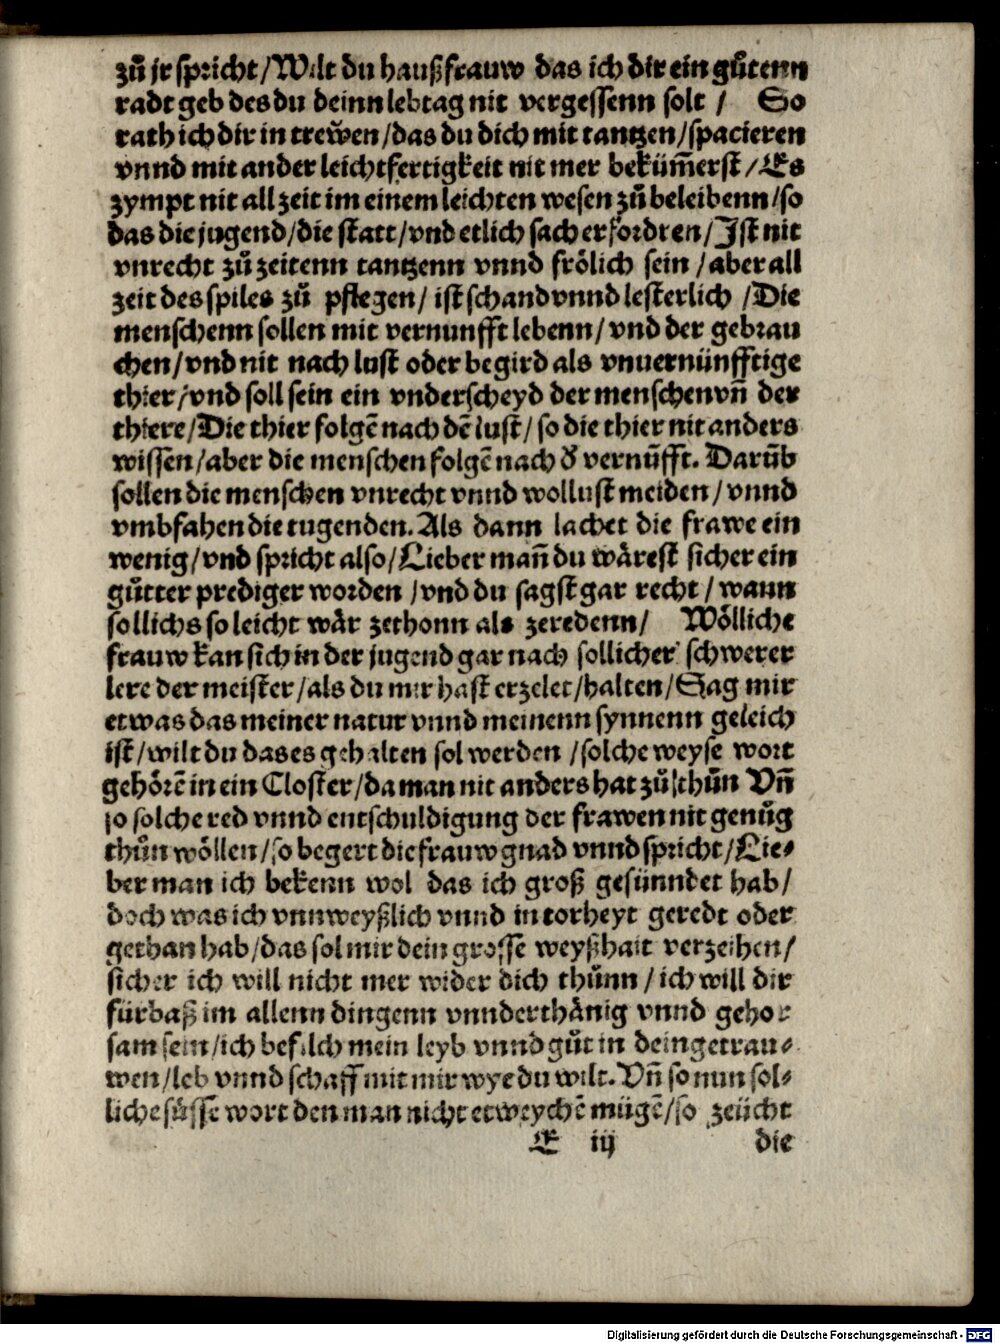 zů jr spricht / Wilt du haußfrauw das ich dir ein gůtenn
radt geb des du deinn lebtag nit vergessenn solt / So
rath ich dir in trewen / das du dich mit tantzen / spacieren
vnnd mit ander leichtfertigkeit nit mer beküm̃erst / Es
zympt nit all zeit im einem leichten wesen zů beleibenn / so
das die jugend / die statt / vnd etlich sach erfordren / Ist nit
vnrecht zů zeitenn tantzenn vnnd frölich sein / aber all
zeit des spiles zů pflegen / ist schand vnnd lesterlich / Die
menschenn sollen mit vernunfft lebenn / vnd der gebrau
chen / vnd nit nach lust oder begird als vnuernünfftige
thier / vnd soll sein ein vnderscheyd der menschen vñ der
thiere / Die thier folgẽ nach dẽ lust / so die thier nit anders
wissen / aber die menschen folgẽ nach d̕ vernũfft. Darũb
sollen die menschen vnrecht vnnd wollust meiden / vnnd
vmbfahen die tugenden. Als dann lachet die frawe ein
wenig / vnd spricht also / Lieber mañ du wärest sicher ein
gůtter prediger worden / vnd du sagst gar recht / wann
sollichs so leicht wär zethonn als zeredenn / Wölliche
frauw kan sich in der jugend gar nach sollicher schwerer
lere der meister / als du mir hast erzelet / halten / Sag mir
etwas das meiner natur vnnd meinenn synnenn geleich
ist / wilt du das es gehalten sol werden / solche weyse wort
gehörẽ in ein Closter / da man nit anders hat zů thůn Vñ
so solche red vnnd entschuldigung der frawen nit genůg
thůn wöllen / so begert die frauw gnad vnnd spricht / Lie⸗
ber man ich bekenn wol das ich groß gesünndet hab /
doch was ich vnnweyßlich vnnd in torheyt geredt oder
gethan hab / das sol mir dein grosse weyßhait verzeihen /
sicher ich will nicht mer wider dich thůnn / ich will dir
fürbaß im allenn dingenn vnnderthänig vnnd gehor
sam sein / ich befilch mein leyb vnnd gůt in dein getrau⸗
wen / leb vnnd schaff mit mir wye du wilt. Vñ so nun sol⸗
liche süsse wort den man nicht erweychẽ mügẽ / so zeücht
E iij die
Digitalisierung gefördert durch die Deutsche Forschungsgemeinschaft - DFG